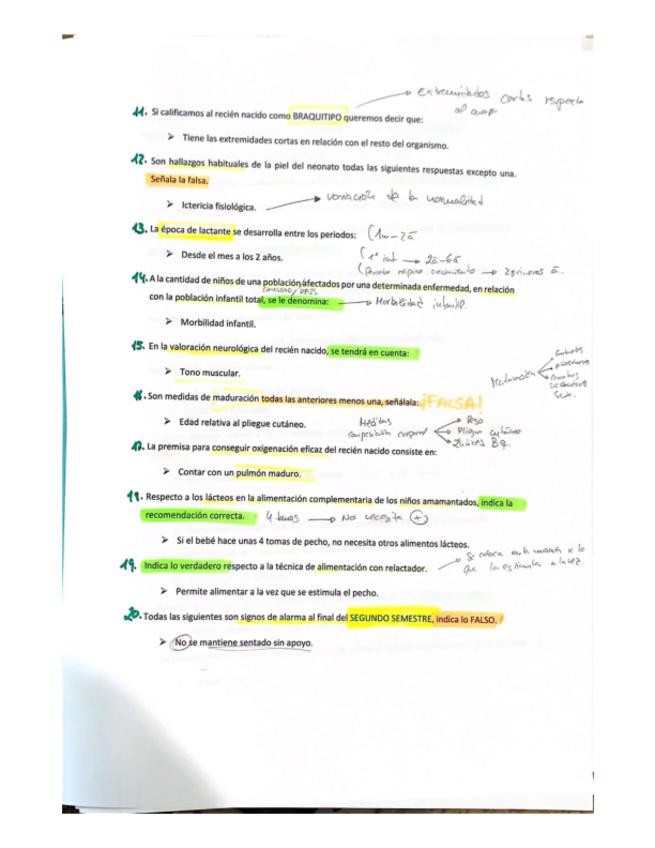 Extremidades cortas respecto
al cuerpo
11. Si calificamos al recién nacido como BRAQUITIPO queremos decir que:
➢ Tiene las extremidades cortas en relación con el resto del organismo.
12. Son hallazgos habituales de la piel del neonato todas las siguientes respuestas excepto una.
Señala la falsa.
➢ Ictericia fisiológica. → variación de la normalidad
13. La época de lactante se desarrolla entre los periodos: (1m-2ā
➢ Desde el mes a los 2 años. (1ª inf → 2ā-6ā
→ 2 primeros ā.
14. A la cantidad de niños de una población afectados por una determinada enfermedad, en relación
con la población infantil total, se le denomina: → Morbilidad infantil.
➢ Morbilidad infantil.
15. En la valoración neurológica del recién nacido, se tendrá en cuenta:
➢ Tono muscular.
Maduración
16. Son medidas de maduración todas las anteriores menos una, señálala: ¡FALSA!
➢ Edad relativa al pliegue cutáneo.
Medidas
composición corporal
Peso
Pliegue cutáneo
17. La premisa para conseguir oxigenación eficaz del recién nacido consiste en:
➢ Contar con un pulmón maduro.
18. Respecto a los lácteos en la alimentación complementaria de los niños amamantados, indica la
recomendación correcta. 4 tomas → No necesita +
➢ Si el bebé hace unas 4 tomas de pecho, no necesita otros alimentos lácteos.
19. Indica lo verdadero respecto a la técnica de alimentación con relactador.
Se coloca en la mama x lo
que la estimula a la vez
➢ Permite alimentar a la vez que se estimula el pecho.
20. Todas las siguientes son signos de alarma al final del SEGUNDO SEMESTRE, indica lo FALSO.
➢ No se mantiene sentado sin apoyo.